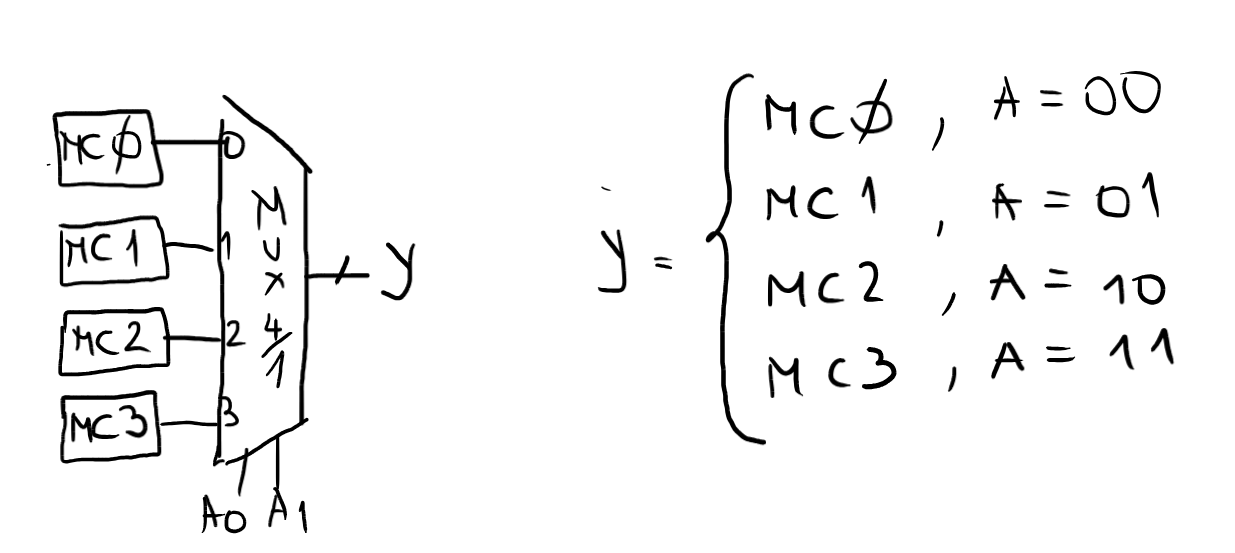 MC∅
0
MC1
1
MC2
2
MC3
3
MUX
4/1
A0 A1
y
y =
MC∅ , A = 00
MC1 , A = 01
MC2 , A = 10
MC3 , A = 11